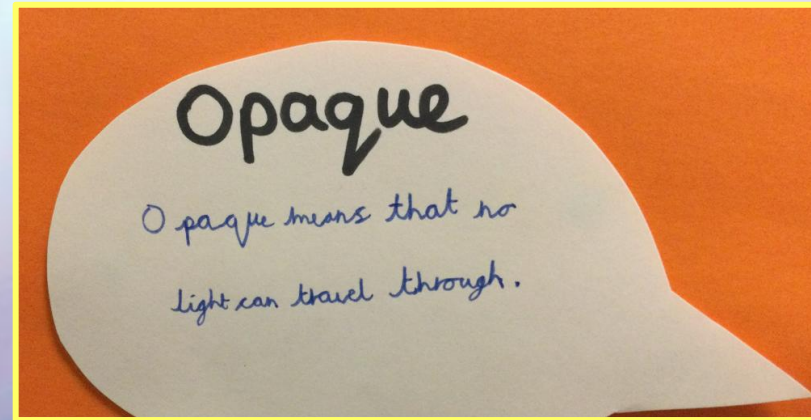 Opaque
Opaque means that no
light can travel through.